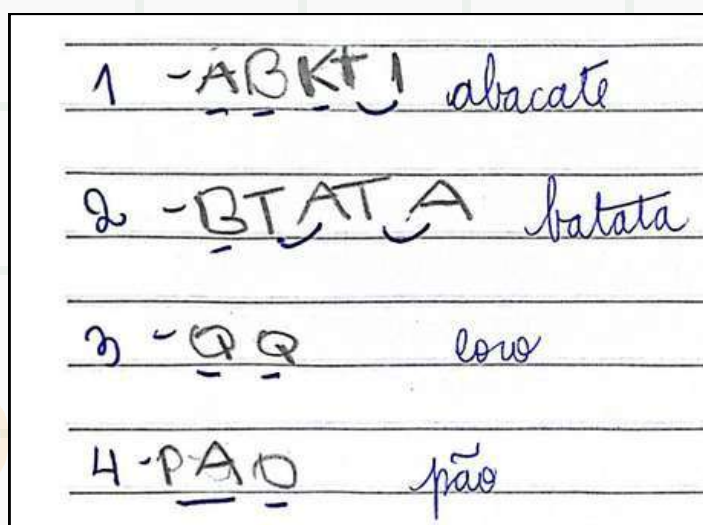 1 -ABKTI abacate
2 -BTATA batata
3 -QQ coco
4-PAO pão